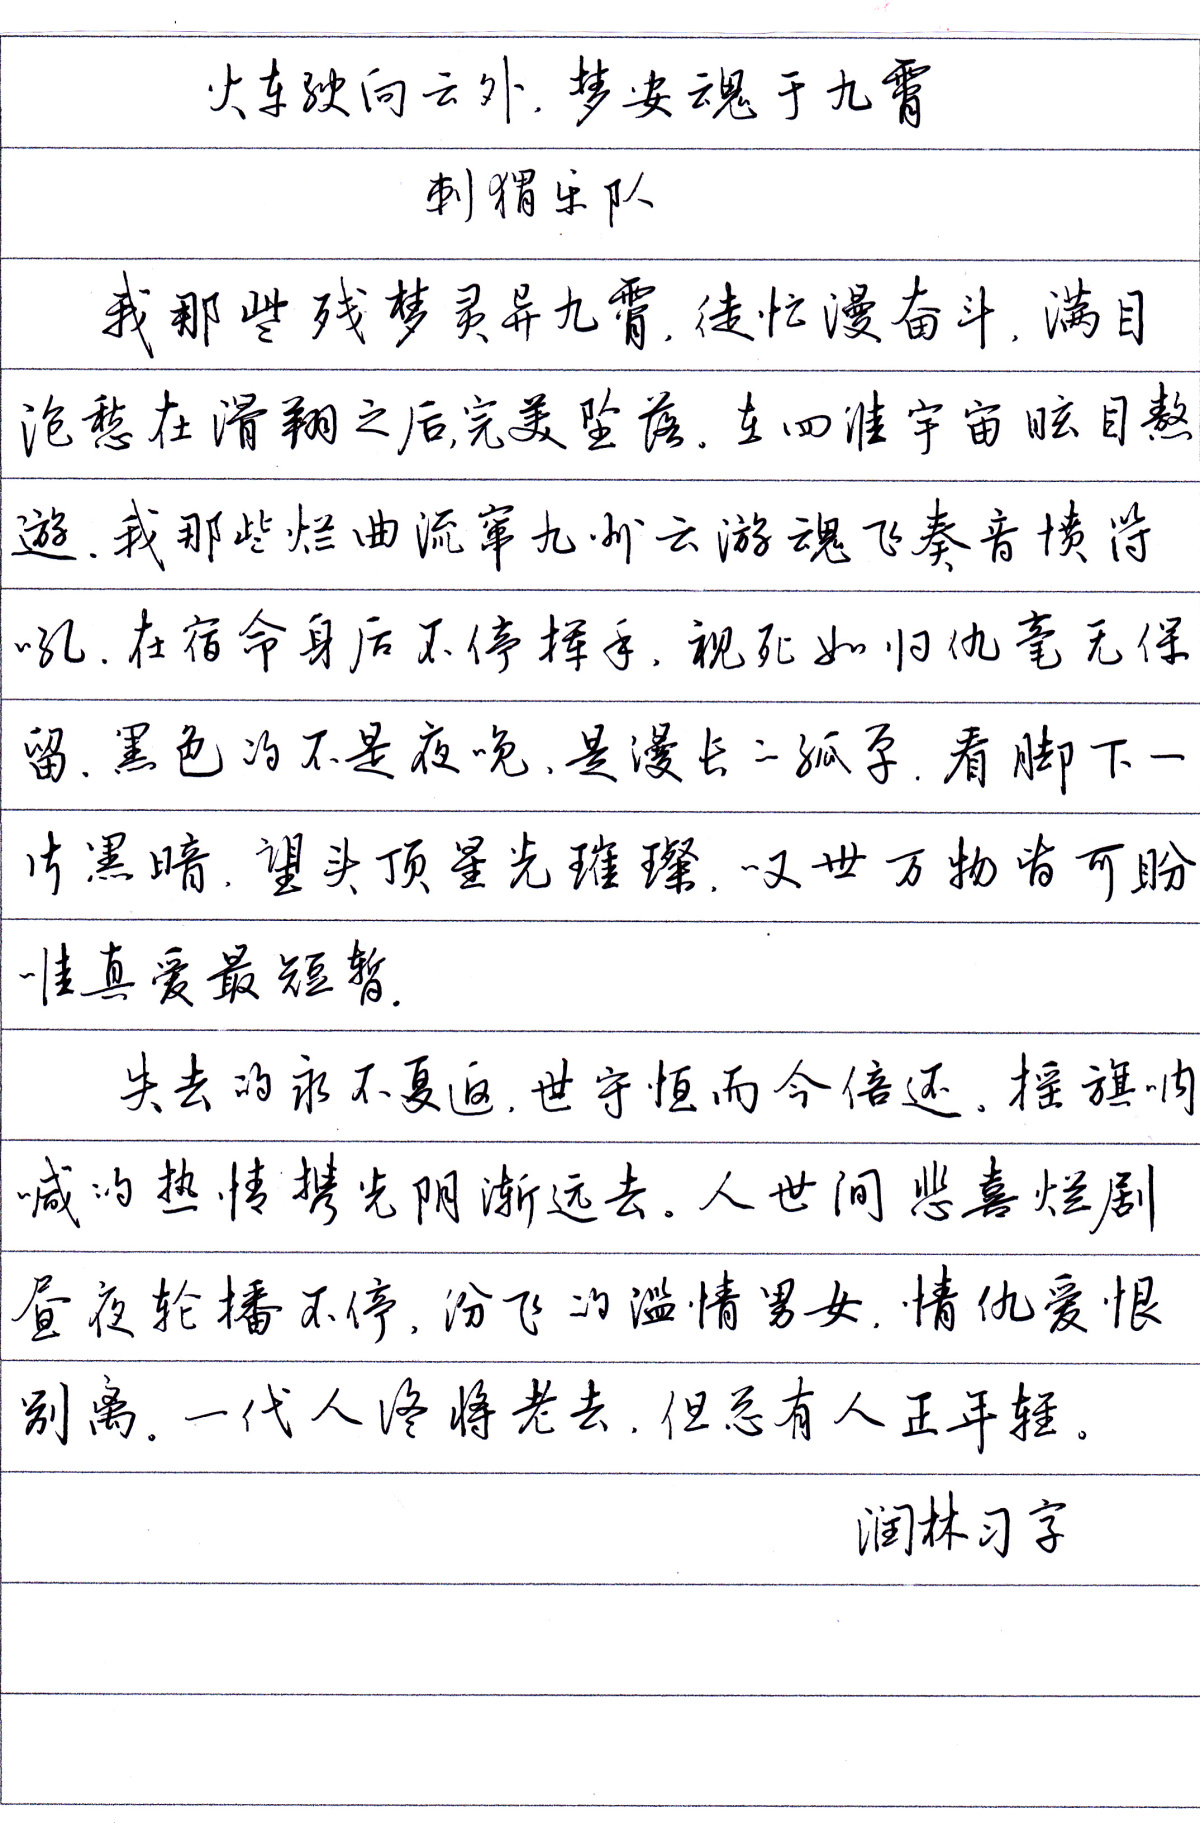 火车驶向云外，梦安魂于九霄
刺猬乐队
我那些残梦灵异九霄，徒忙漫奋斗，满目
沧愁在滑翔之后，完美坠落。在四维宇宙眩目熬
遊，我那些烂曲流窜九州云游魂飞奏音愤符
吼，在宿命身后不停挥手，视死如归仇毫无保
留，黑色的不是夜晚，是漫长的孤单，看脚下一
片黑暗，望头顶星光璀璨，叹世万物皆可盼
唯真爱最短暂。
失去的永不复返，世守恒而今倍还。摇旗呐
喊的热情携光阴渐远去。人世间悲喜烂剧
昼夜轮播不停，汾飞的滥情男女，情仇爱恨
别离。一代人终将老去，但总有人正年轻。
润林习字